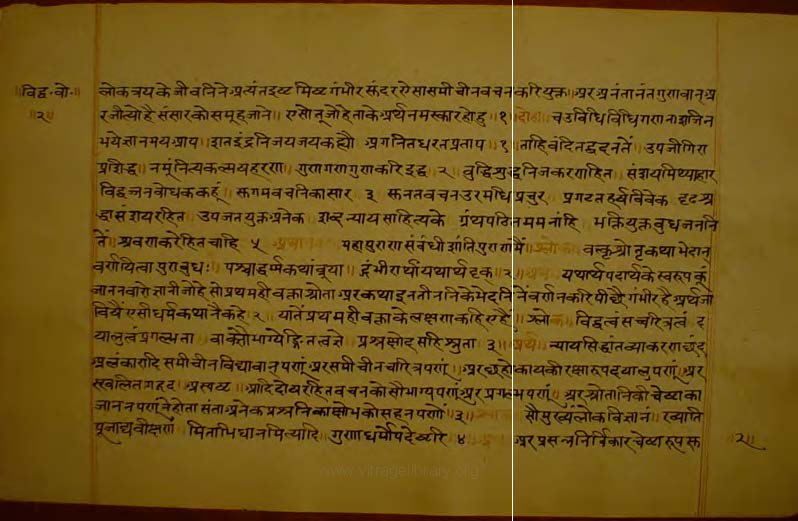 ॥विद्व॰बो॰॥
॥२॥
लोकत्रयके जीवनिनै प्रत्यंत इष्ट मिष्ट गंभीर सुंदर ऐसा समीचीन वचनकरि युक्त ॥ अर अनंतानंत गुणवान् अर
जीत्यो है संसारको समूह जानै ॥ एसो जो हे ताके अर्थ नमस्कार होहु ॥१॥ दोहा चउविधि विधि गण नाश जिन
भये ज्ञानमय आप ॥ शत इंद्रनि जय जय कह्यौ अगनित धरत प्रताप १ ताहि वंदि तद्वदनतें उपजी गिरा
प्रशिद्ध ॥ नमूं नित्य कल्मषहरण ॥ गुणगण गुणकरि इद्ध २ बुद्धि शुद्ध निज करण हित संशय मिथ्या हार
विद्वज्जनबोधक कहूं ॥ सुगम वचनिका सार ३ सुनत वचन उरमधि प्रचुर प्रगटत हर्ष विवेक दृढ श्र
द्धा संशय रहित उपजत युक्त अनेक शब्द न्याय साहित्यके ग्रंथ पठित मम नांहि भक्ति युक्त बुध जननि
तें ॥ श्रवण करे हित चाहि ५ महापुराण संबंधी शांतिपुराणमैं ॥ श्लोक वक्तृश्रोतृकथाभेदान्
वर्णयित्वा पुरा बुधः ॥ पश्चाद्धर्मकथां ब्रूया ॥ द्गंभीरार्थां यथार्थदृक् ॥१॥ अर्थ यथार्थ पदार्थके स्वरूपकूं
जाननवारो ज्ञानी जो हे सो प्रथमही वक्ता श्रोता अर कथा इन तीननिके भेदनिनें वर्णनकरि पीछै गंभीर है अर्थ जा
वियैं एसी धर्मकथानै कहे २ यातें प्रथमही वक्ताके लक्षण कहिए हैं ॥ श्लोक विद्वत्वं सच्चरित्रत्वं द
यालुत्वं प्रगल्भता वाक्सौभाग्येङ्गितज्ञत्वे प्रश्नक्षोदसहिश्नुता ३ ॥ अर्थ न्याय सिद्धांत व्याकरण छंद
अलंकारादि समीचीन विद्यावान् पणूं अर समीचीन चारित्रपणूं ॥ अर छहो कायकी रक्षारूप दयालुपणूं ॥ अर
स्खलित गद्गद अस्पष्ट ॥ आदि दोषरहित वचनको सौभाग्यपणूं ॥ अर प्रगल्भपणूं ॥ अर श्रोतानिकी चेष्टाका
जाननपणूं वेहोता संता अनेक प्रश्ननिका क्षोभको सहनपणों ॥३॥ सौमुख्यं लोकविज्ञानं ॥ ख्याति
पूजाद्यवीक्षणं मिताभिधानमित्यादि ॥ गुणा धर्मोपदेष्टरि ४ अर प्रसन्न निर्विकार चेष्टारूप सु
॥२॥
www.vitragelibrary.org